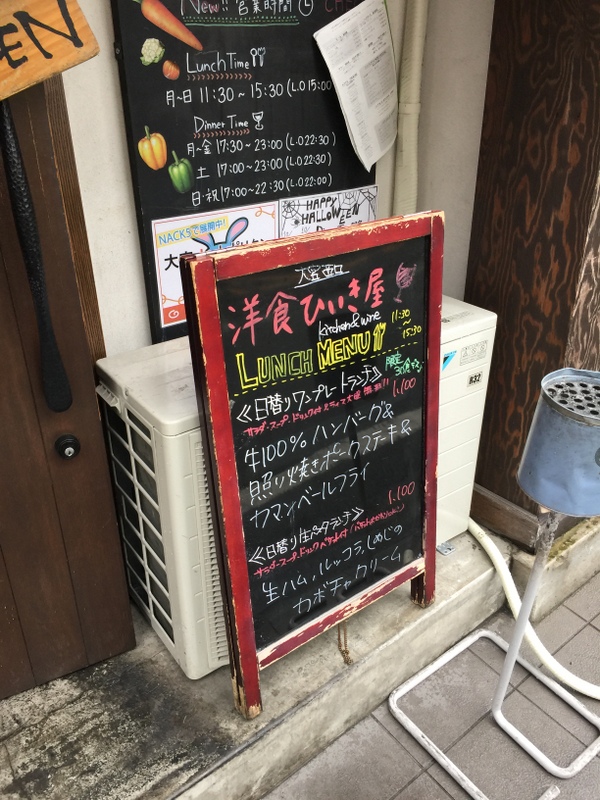 EN
New!! 営業時間
Lunch Time
月〜日 11:30〜15:30 (L.O 15:00
Dinner Time
月〜金 17:30〜23:00 (L.O 22:30)
土 17:00〜23:00 (L.O 22:30)
日・祝 17:00〜22:30 (L.O 22:00)
NACK5で展開中!
HAPPY
HALLOWEEN
大宮西口
洋食ひいき屋
kitchen & wine
11:30
〜
15:30
LUNCH MENU
限定
《日替りワンプレートランチ》
1,100
サラダ・スープ・ドリンク付
牛100%ハンバーグ&
照り焼きポークステーキ&
カマンベールフライ
1,100
《日替り生パスタランチ》
サラダ・スープ・ドリンク
生ハム、ルッコラ、しめじの
カボチャクリーム
R32